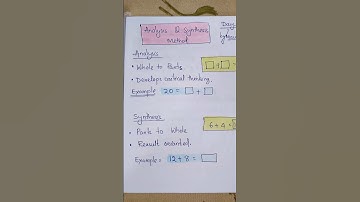 Analysis & Synthesis
Method
Days
Analysis
• Whole to Parts.
• Develops critical thinking.
Example 20 = □ + □
□ + □ =
Synthesis
• Parts to Whole
• Result oriented.
6 + 4 =
Example: 12 + 8 = □